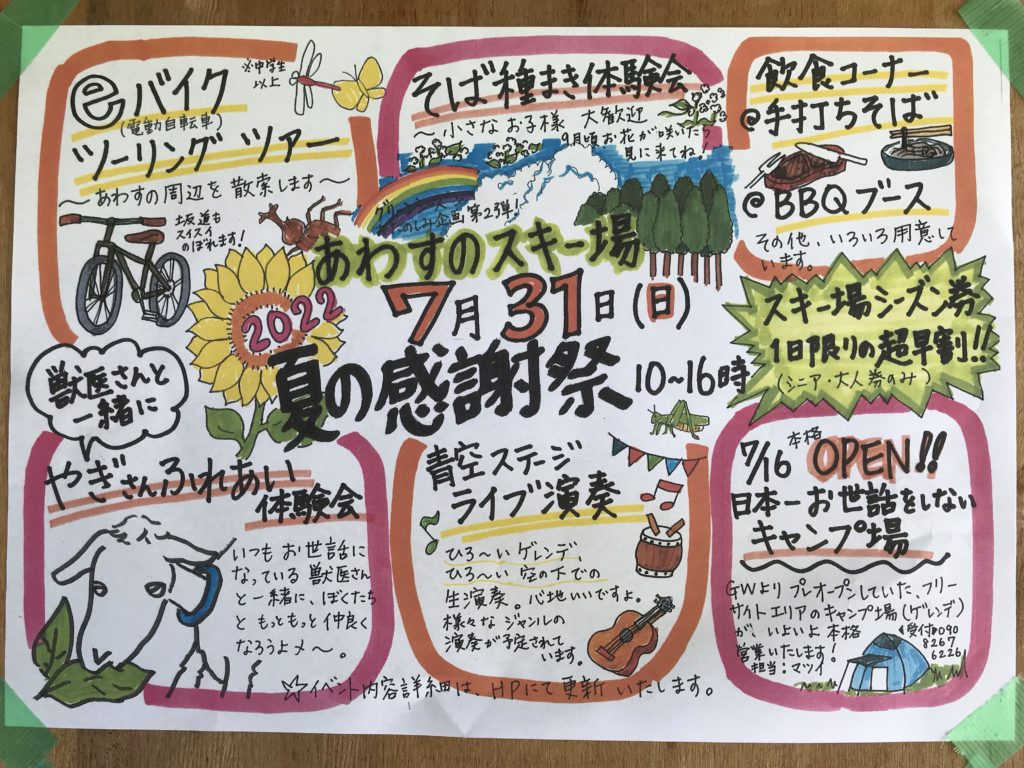 eバイク
※中学生
以上
(電動自転車)
ツーリング ツアー
～あわすの周辺を散索します～
坂道も
スイスイ
のぼれます!
そば種まき体験会
～小さなお子様 大歓迎
9月頃お花が咲いたら
見に来てね!
飲食コーナー
@手打ちそば
@BBQブース
その他、いろいろ用意して
います。
グリーンシーズン
おたのしみ企画第2弾!
あわすのスキー場
2022
7月31日(日)
夏の感謝祭
10~16時
スキー場シーズン券
1日限りの超早割!!
(シニア・大人券のみ)
獣医さんと
一緒に
やぎさんふれあい
体験会
いつもお世話に
なっている獣医さん
と一緒に、ぼくたち
ともっともっと仲良く
なろうよメ〜。
青空ステージ
ライブ演奏
ひろ〜いゲレンデ
ひろ〜い空の下での
生演奏。心地いいですよ。
様々なジャンルの
演奏が予定されて
います。
7/16 本格 OPEN!!
日本一お世話をしない
キャンプ場
GWよりプレオープンしていた、フリー
サイトエリアのキャンプ場(ゲレンデ)
が、いよいよ本格
営業いたします!
担当:マツイ
受付☎090
8267
6226
☆イベント内容詳細は、HPにて更新いたします。